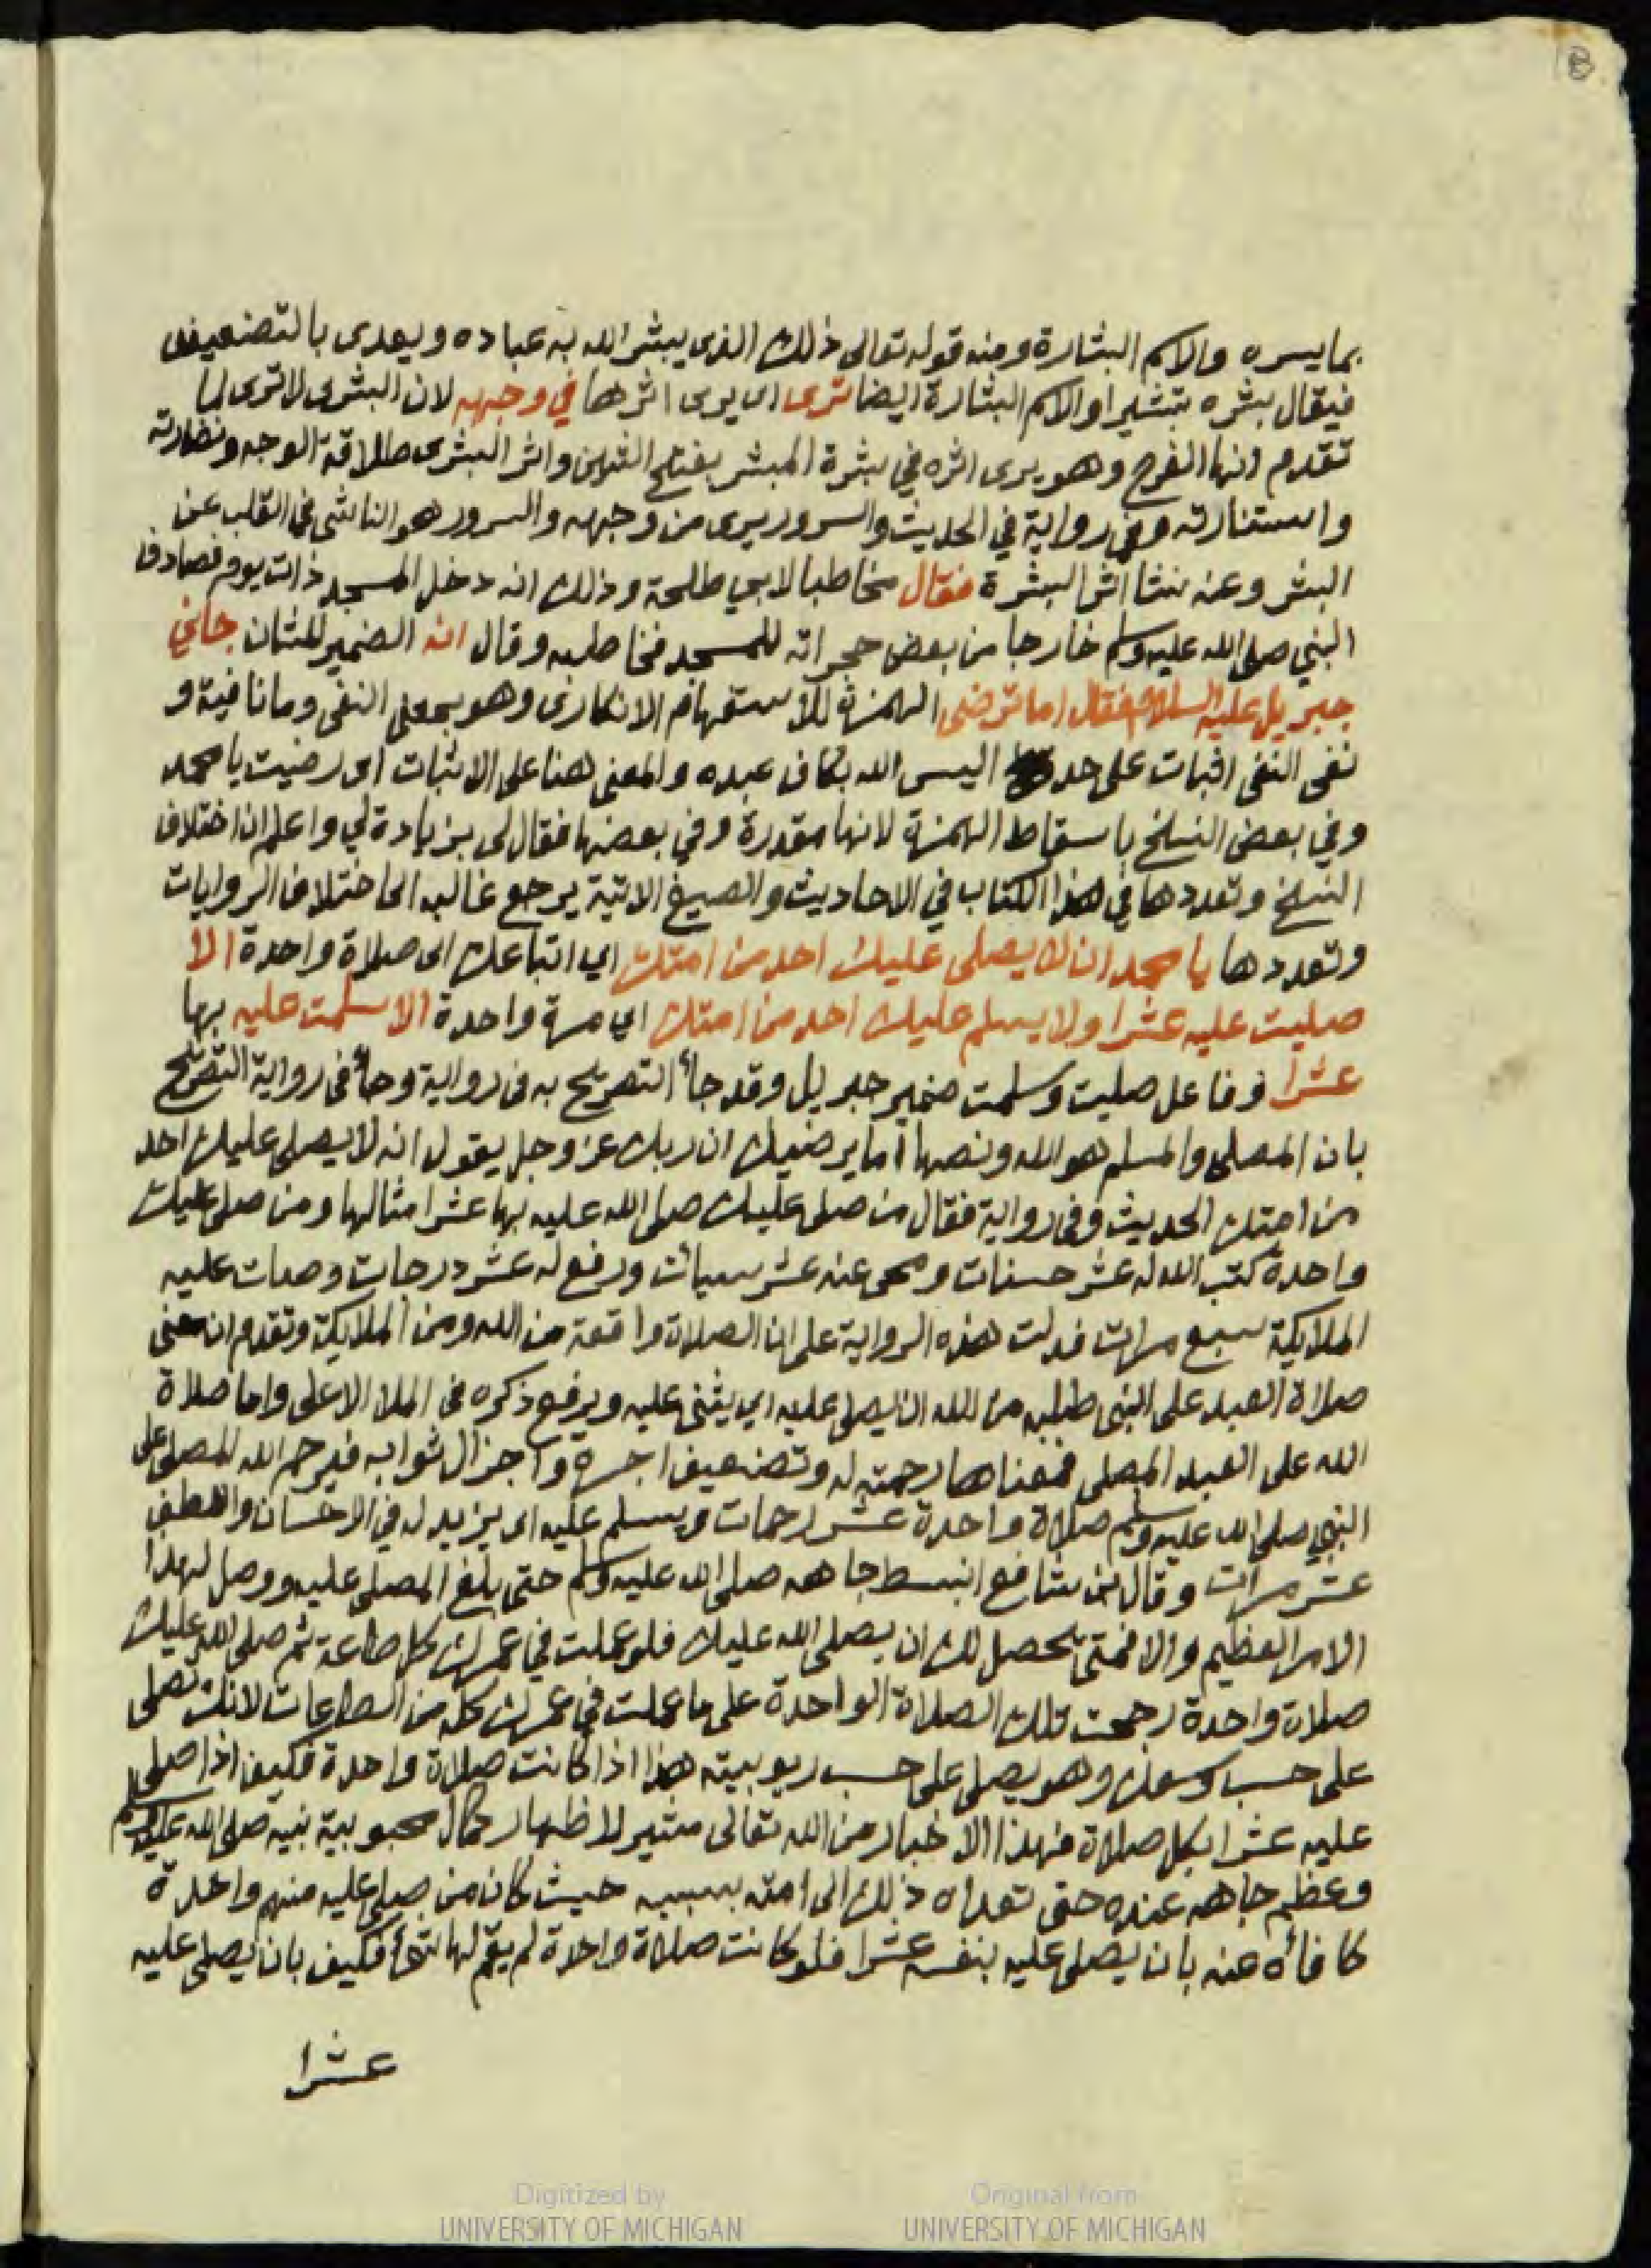 بما يسره والاسم البشارة ومنه قوله تعالى ذلك الذى يبشر الله به عباده ويعدى بالتضعيف
فيقال بشره تبشيرا والاسم البشارة ايضا ترى اى يرى اثرها في وجهه لان البشرى لا ترى لما
تقدم انها الفرح وهو يرى اثره في بشرة المبشر بفتح الشين واثر البشرى طلاقة الوجه ونضارته
واستنارته وفى رواية في الحديث والسرور يرى من وجهه والسرور هو الناشى في القلب عن
البشر وعنه ينشا اثر البشرة فقال مخاطبا لابي طلحة وذلك انه دخل المسجد ذات يوم فصادف
النبي صلى الله عليه وسلم خارجا من بعض حجراته للمسجد فخاطبه وقال انه الضمير للشان جاني
جبريل عليه السلام فقال اما ترضى الهمزة للاستفهام الانكارى وهو بمعنى النفى وما نافية و
نفى النفى اثبات على حد اليس الله بكاف عبده والمعنى هنا على الاثبات اى رضيت يا محمد
وفي بعض النسخ باسقاط الهمزة لانها مقدرة وفي بعضها فقال لى بزيادة لي واعلم ان اختلاف
النسخ وتعددها في هذا الكتاب في الاحاديث والصيغ الاتية يرجع غالبه الى اختلاف الروايات
وتعددها يا محمد ان لا يصلى عليك احد من امتك اي اتباعك اى صلاة واحدة الا
صليت عليه عشرا ولا يسلم عليك احد من امتك اي مرة واحدة الا سلمت عليه بها
عشرا وفاعل صليت وسلمت ضمير جبريل وقد جأ التصريح به فى رواية وجأ فى رواية التصريح
بان المصلى والمسلم هو الله ونصها أما يرضيك ان ربك عز وجل يقول انه لا يصلى عليك احد
من امتك الحديث وفى رواية فقال من صلى عليك صلى الله عليه بها عشرا مثالها ومن صلى عليك
واحدة كتب الله له عشر حسنات ومحى عنه عشر سيئات ورفع له عشر درجات وصلت عليه
الملايكة سبع مرات فدلت هذه الرواية على ان الصلاة واقعة من الله ومن الملايكة وتقدم ان معنى
صلاة العبد على النبى طلبه من الله ان يصلى عليه اي يثنى عليه ويرفع ذكره فى الملا الاعلى واما صلاة
الله على العبد المصلى فمعناها رحمته له وتضعيف اجره واجزال ثوابه فيرحم الله المصلى على
النبي صلى الله عليه وسلم صلاة واحدة عشر رحمات ويسلم عليه اى يزيد له في الاحسان والعطف
عشر مرات وقال بن شافع انبسط جاهه صلى الله عليه وسلم حتى بلغ المصلى عليه ووصل لهذا
الامر العظيم والا فمتى يحصل لك ان يصلى الله عليك فلو عملت في عمرك كل طاعة ثم صلى الله عليك
صلاة واحدة رجحت تلك الصلاة الواحدة على ما عملت في عمرك كله من الطاعات لانك تصلى
على حسب وسعك وهو يصلى على حسب ربوبيته هذا اذا كانت صلاة واحدة فكيف اذا صلى
عليه عشرا بكل صلاة فهذا الاخبار من الله تعالى مشير لاظهار كمال محبوبية نبيه صلى الله عليه وسلم
وعظم جاهه عنده حتى تعداه ذلك الى امته بسببه حيث كان من صلى عليه منهم واحدة
كافأه عنه بان يصلى عليه بنفسه عشرا فلو كانت صلاة واحدة لم يقم لها شئ فكيف بان يصلى عليه
عشرا
Digitized by
UNIVERSITY OF MICHIGAN
Original from
UNIVERSITY OF MICHIGAN